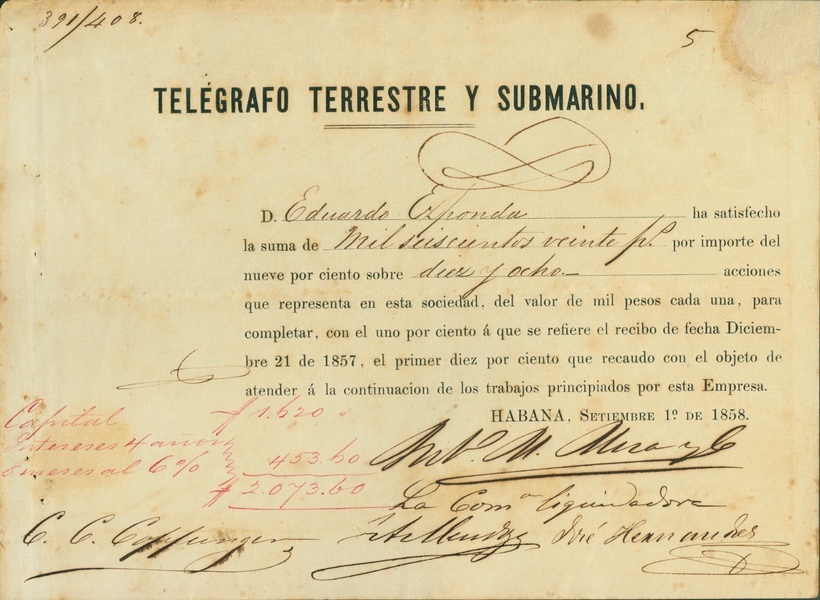 391/408.
5
TELÉGRAFO TERRESTRE Y SUBMARINO.
D. Eduardo Ezponda ha satisfecho
la suma de Mil seiscientos veinte ps. por importe del
nueve por ciento sobre diez y ocho acciones
que representa en esta sociedad, del valor de mil pesos cada una, para
completar, con el uno por ciento á que se refiere el recibo de fecha Diciem-
bre 21 de 1857, el primer diez por ciento que recaudo con el objeto de
atender á la continuacion de los trabajos principiados por esta Empresa.
HABANA, SETIEMBRE 1º. DE 1858.
Capital $ 1.620 "
Intereses 4 años
al 6% 453.60
$ 2.073.60
M.
La Comon liquidadora
C. C. Coppinger José Hernandez